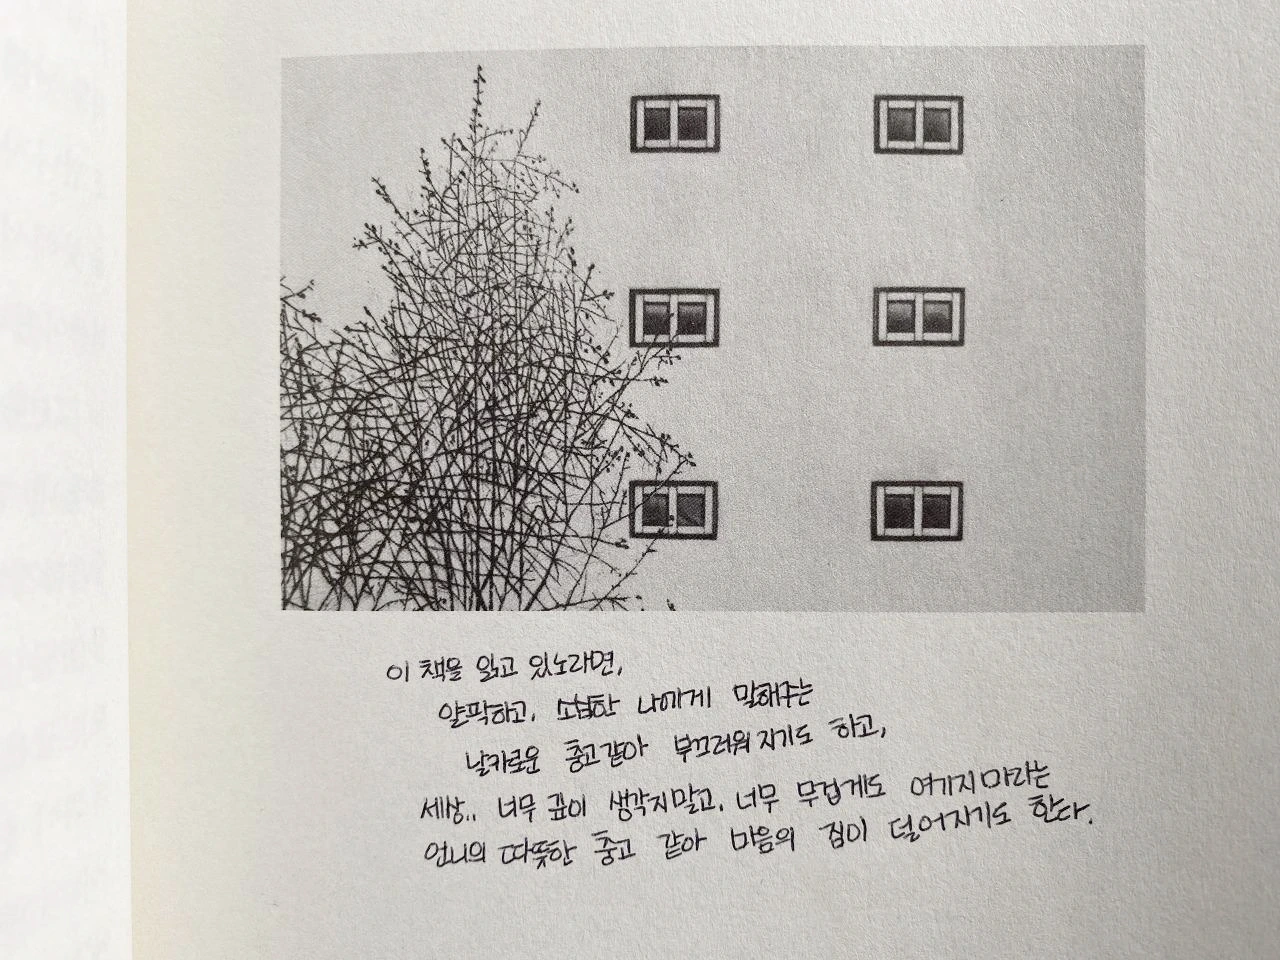 이 책을 읽고 있노라면,
얄팍하고, 소협한 나에게 말해주는
날카로운 충고같아 부끄러워지기도 하고,
세상.. 너무 깊이 생각지말고, 너무 무겁게도 여기지마라는
언니의 따뜻한 충고 같아 마음의 짐이 덜어지기도 한다.